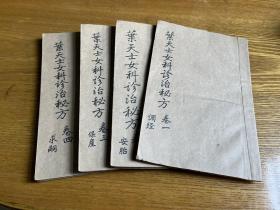 葉天士女科診治秘方 卷一
調经
葉天士女科診治秘方
安胎
葉天士女科診治秘方 卷三
保產
葉天士女科診治秘方 卷四
求嗣